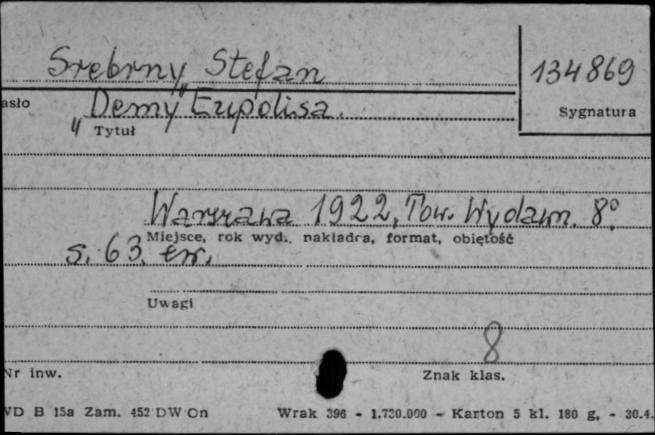 Srebrny Stefan
134869
asło
Sygnatura
„Demy" Eupolisa.
Tytuł
Warszawa 1922, Tow. Wydawn. 8°.
Miejsce, rok wyd., nakładca, format, objętość
s. 63.
Uwagi
8
Nr inw.
Znak klas.
WD B 15a Zam. 452 DW On Wrak 396 - 1.730.000 - Karton 5 kl. 180 g. - 30.4.